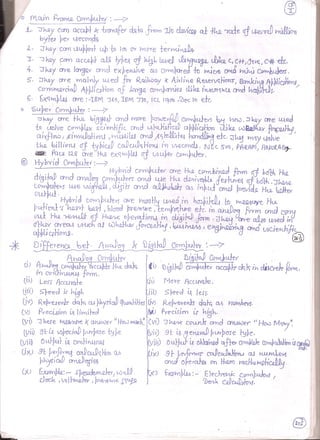 Main Frame Computer :→
1. They can accept & transfer data from I/o devices at the rate of several million
bytes per seconds.
2. They can support up to 100 or more terminals
3. They can accept all types of high level language like C, C++, Java, C# etc.
4. They are larger and expensive as compared to micro and mini Computers.
5. They are mainly used for Railway & Airline Reservations, Banking Applications,
Commercial Application of large companies like insurance and hospitals
6. Examples are :- IBM
Super Computer :→
They are the biggest and more powerful computers by size. They are used
to solve complex scientific and statistical application like weather forecasting,
simulations, missiles and satellites handling etc. They may solve
the billions of typical calculations in seconds. NEC SM, PARAM,
are the examples of super computer.
Hybrid Computer :→
Hybrid computer are the combined form of both the
digital and analog computers and use the desirable features of both. These
computers use digit and alphabets as input and provide the better
output.
Hybrid computer are mostly used in hospitals to measure the
patient's heart beat, blood pressure, temperature etc. in analog form and
out the result of these operations in digital form. They are also used in
other areas such as weather forecasting, business, engineering and scientific
applications.
* Difference bet. Analog & Digital Computer :→
Analog Computer Digital Computer
(i) Analog computer accepts the data (i) Digital computer accept data in discrete form.
in continuous form.
(ii) Less Accurate (ii) More Accurate.
(iii) Speed is high (iii) Speed is less
(iv) Represents data as physical Quantities (iv) Represents data as numbers
(v) Precision is limited (v) Precision is high.
(vi) These measure & answer "How much" (vi) These count and answer "How Many".
(vii) It is special purpose type (vii) It is general purpose type.
(viii) Output is continuous (viii) Output is obtained after complete computation is
(ix) It perform calculation as (ix) It perform calculations as numbers
physical analogies and operates on them mathematically.
(x) Example:- Speedometer, wall (x) Examples:- Electronic computer,
clock, voltmeter, pressure Desk calculator.